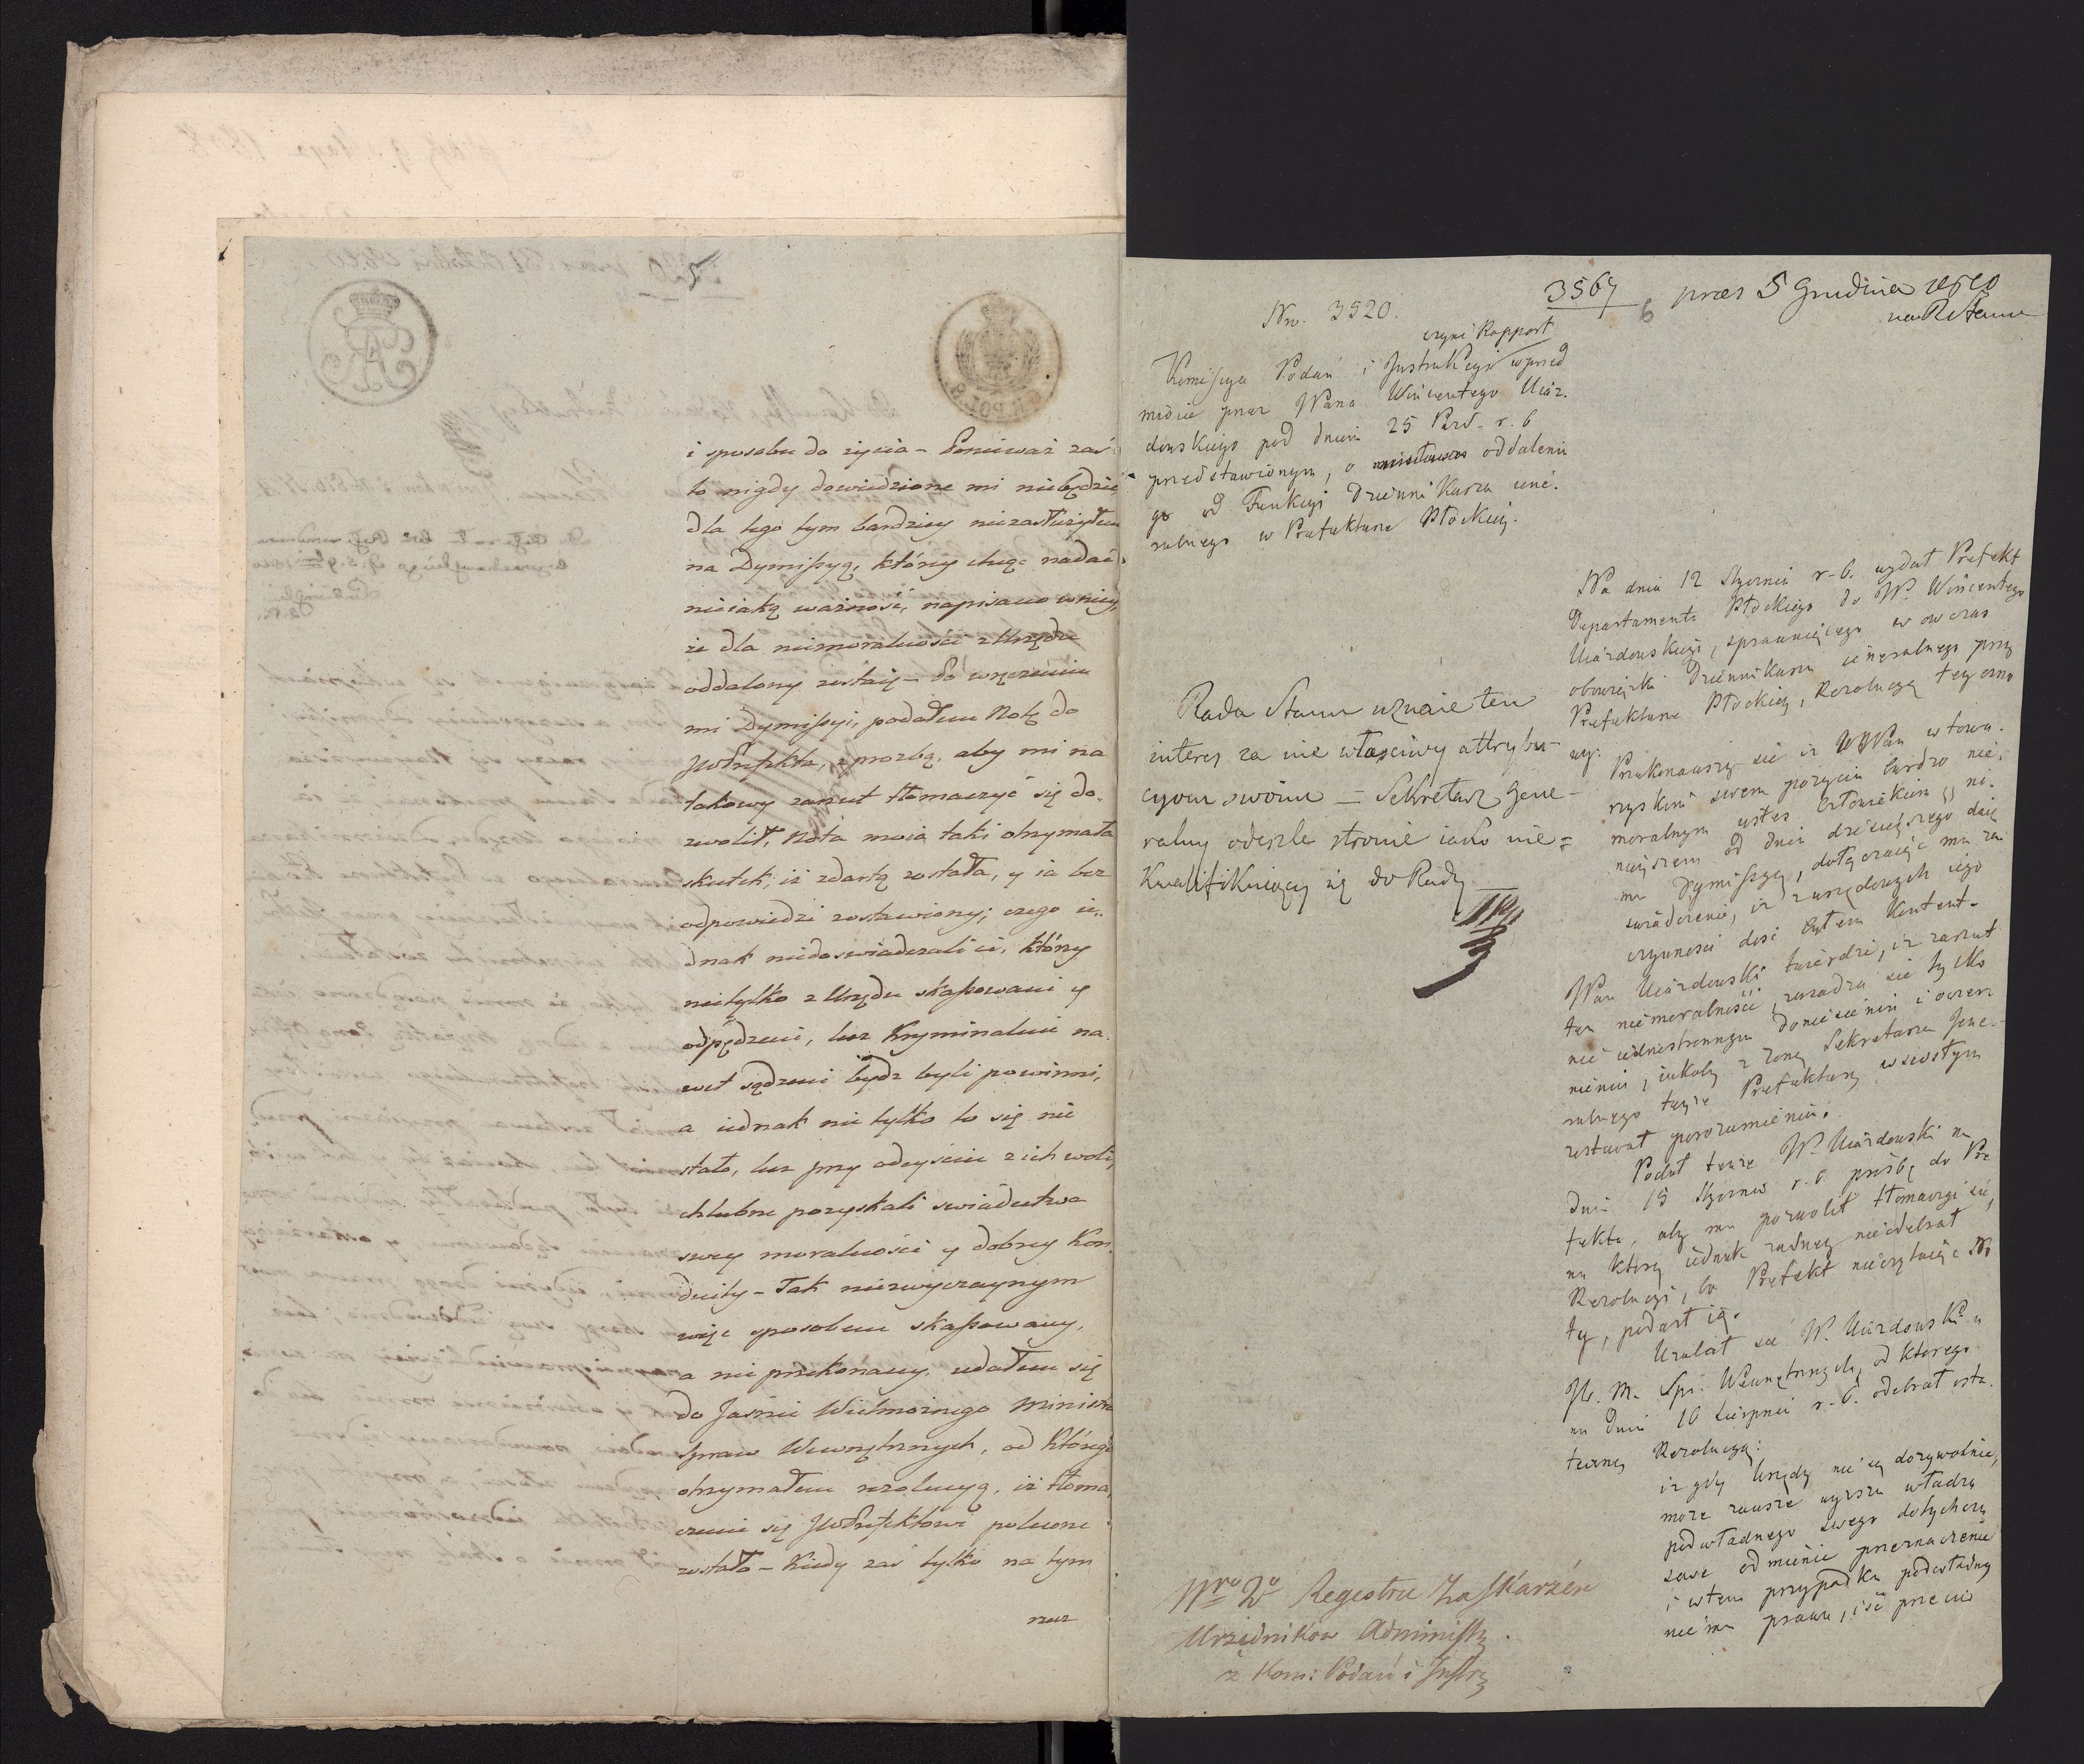 5
i sposobu do życia – Ponieważ zaś
to nigdy dowiedzione mi niebędzie
dla tego tym bardziey niezasłużyłem
na Dymissyą, którey chcąc nadać
nieiaką ważność, napisano w niey,
że dla niemoralności z Urzędu
oddalony zostaię – Po wręczeniu
mi Dymissyi, podałem Notę do
JWPrefekta, z prozbą, aby mi na
takowy zarzut tłomaczyć się do-
zwolił, Nota moia taki otrzymała
skutek, iż zdartą została, y ia bez
odpowiedzi zostawiony; czego ie-
dnak niedoswiadczali ci, którzy
nietylko z Urzędu skassowani y
odpędzeni, lecz Kryminalnie na-
wet sądzeni bydz byli powinni,
a iednak nie tylko to się nie
stało, lecz przy odeyściu z ich woli,
chlubne pozyskali swiadectwa
swey moralności y dobrey Kon-
duity – Tak niezwyczaynym
więc sposobem skassowany,
a nie przekonany, udałem się
do Jaśnie Wielmożnego Ministra
Spraw Wewnętrznych, od którego
otrzymałem rezolucyą, iż tłoma-
czenie się JWPrefektowi polecone
zostało – Kiedy zaś tylko na tym
rzecz
3567
6
præs 5 Grudnia 1810
na R Stanu
Nro. 3520.
czyni Rapport
Komissya Podań i Instrukcyi w przed
miocie przez WPana Wincentego Uiaz-
dowskiego pod dniem 25 Paźd. r. b
przedstawionym, o oddaleniu
go od Funkcyi Dziennikarza iene-
ralnego w Prefekturze Płockiey.
Rada Stanu uznaie ten
interes za nie właściwy attrybu-
cyom swoim = Sekretarz Gene-
ralny odeszle stronie iako nie=
kwalifikuiący się do Rady
Nro 2o Regestru Zaskarżeń
Urzędnikow Administr.
z Kom: Podań i Instr
Na dniu 12 Stycznia r. b. wydał Prefekt
Departamentu Płockiego do W. Wincentego
Uiazdowskiego, sprawuiącego w owczas
obowiązki Dziennikarza ieneralnego przy
Prefekturze Płockiey, Rezolucyą tey osno
wy:
Przekonawszy się iż WWPan w towa-
rzyskim swem pożyciu bardzo nie-
moralnym iesteś człowiekiem, ni-
nieyszem od dnia dzisieyszego daię
mu Dymissyą, dołączaiąc mu za
swiadczenie, iż z urzędowych iego
czynności dość byłem kontent.
Pan Uiazdowski twierdzi, iż zarzut
ten niemoralności, zasadza się tylko
na iednostronnym doniesieniu i oczer
nieniu, iakoby z żoną Sekretarza Jene-
ralnego teyże Prefektury w scisłym
zostawał porozumieniu.
Podał tenże W. Uiazdowski na
dniu 15 Stycznia r. b. prośbę do Pre
fekta, aby mu pozwolił tłomaczyć się,
na którą iednak żadney nieodebrał
Rezolucyi, bo Prefekt nieczytaiąc No
ty, podarł ią.
Użalał się W. Uiazdowski u
JW. M. Spr. Wewnętrznych, od którego
na dniu 10 Sierpnia r. b. odebrał osta-
teczną Rezolucyą:
iż gdy Urzędy nie są dożywotnie,
może zawsze wyższa władza
podwładnego swego dotychcza
sowe odmienić przeznaczenie
i w tem przypadku podwładny
nie ma prawa, iść przeciw